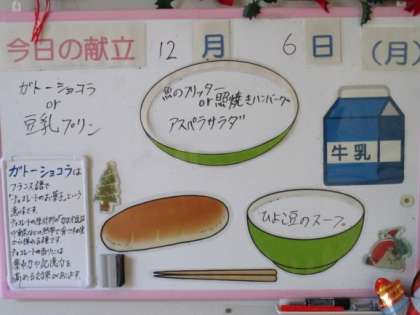 今日の献立 12月 6日 (月)
ガトーショコラ
or
豆乳プリン
魚のフリッター
or 照焼きハンバーグ
アスパラサラダ
牛乳
ひよこ豆のスープ
ガトーショコラは
フランス語で
"チョコレートのお菓子"という
意味です。
チョコレートの